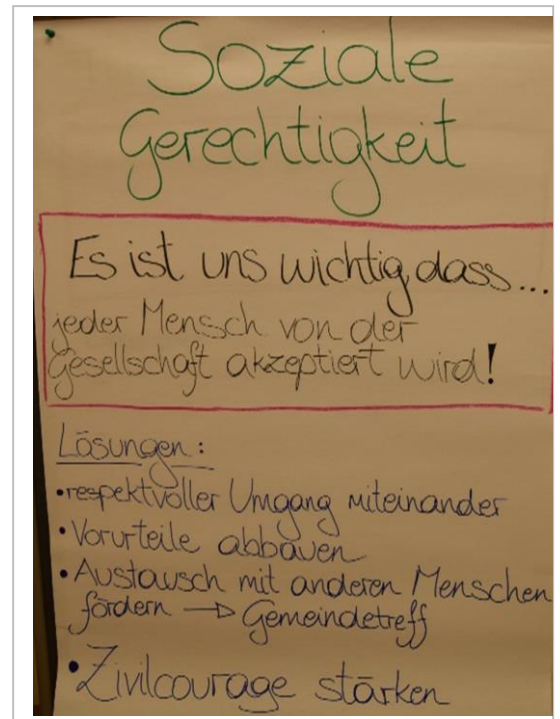 Soziale
Gerechtigkeit
Es ist uns wichtig, dass...
jeder Mensch von der
Gesellschaft akzeptiert wird!
Lösungen:
• respektvoller Umgang miteinander
• Vorurteile abbauen
• Austausch mit anderen Menschen
fördern → Gemeindetreff
• Zivilcourage stärken